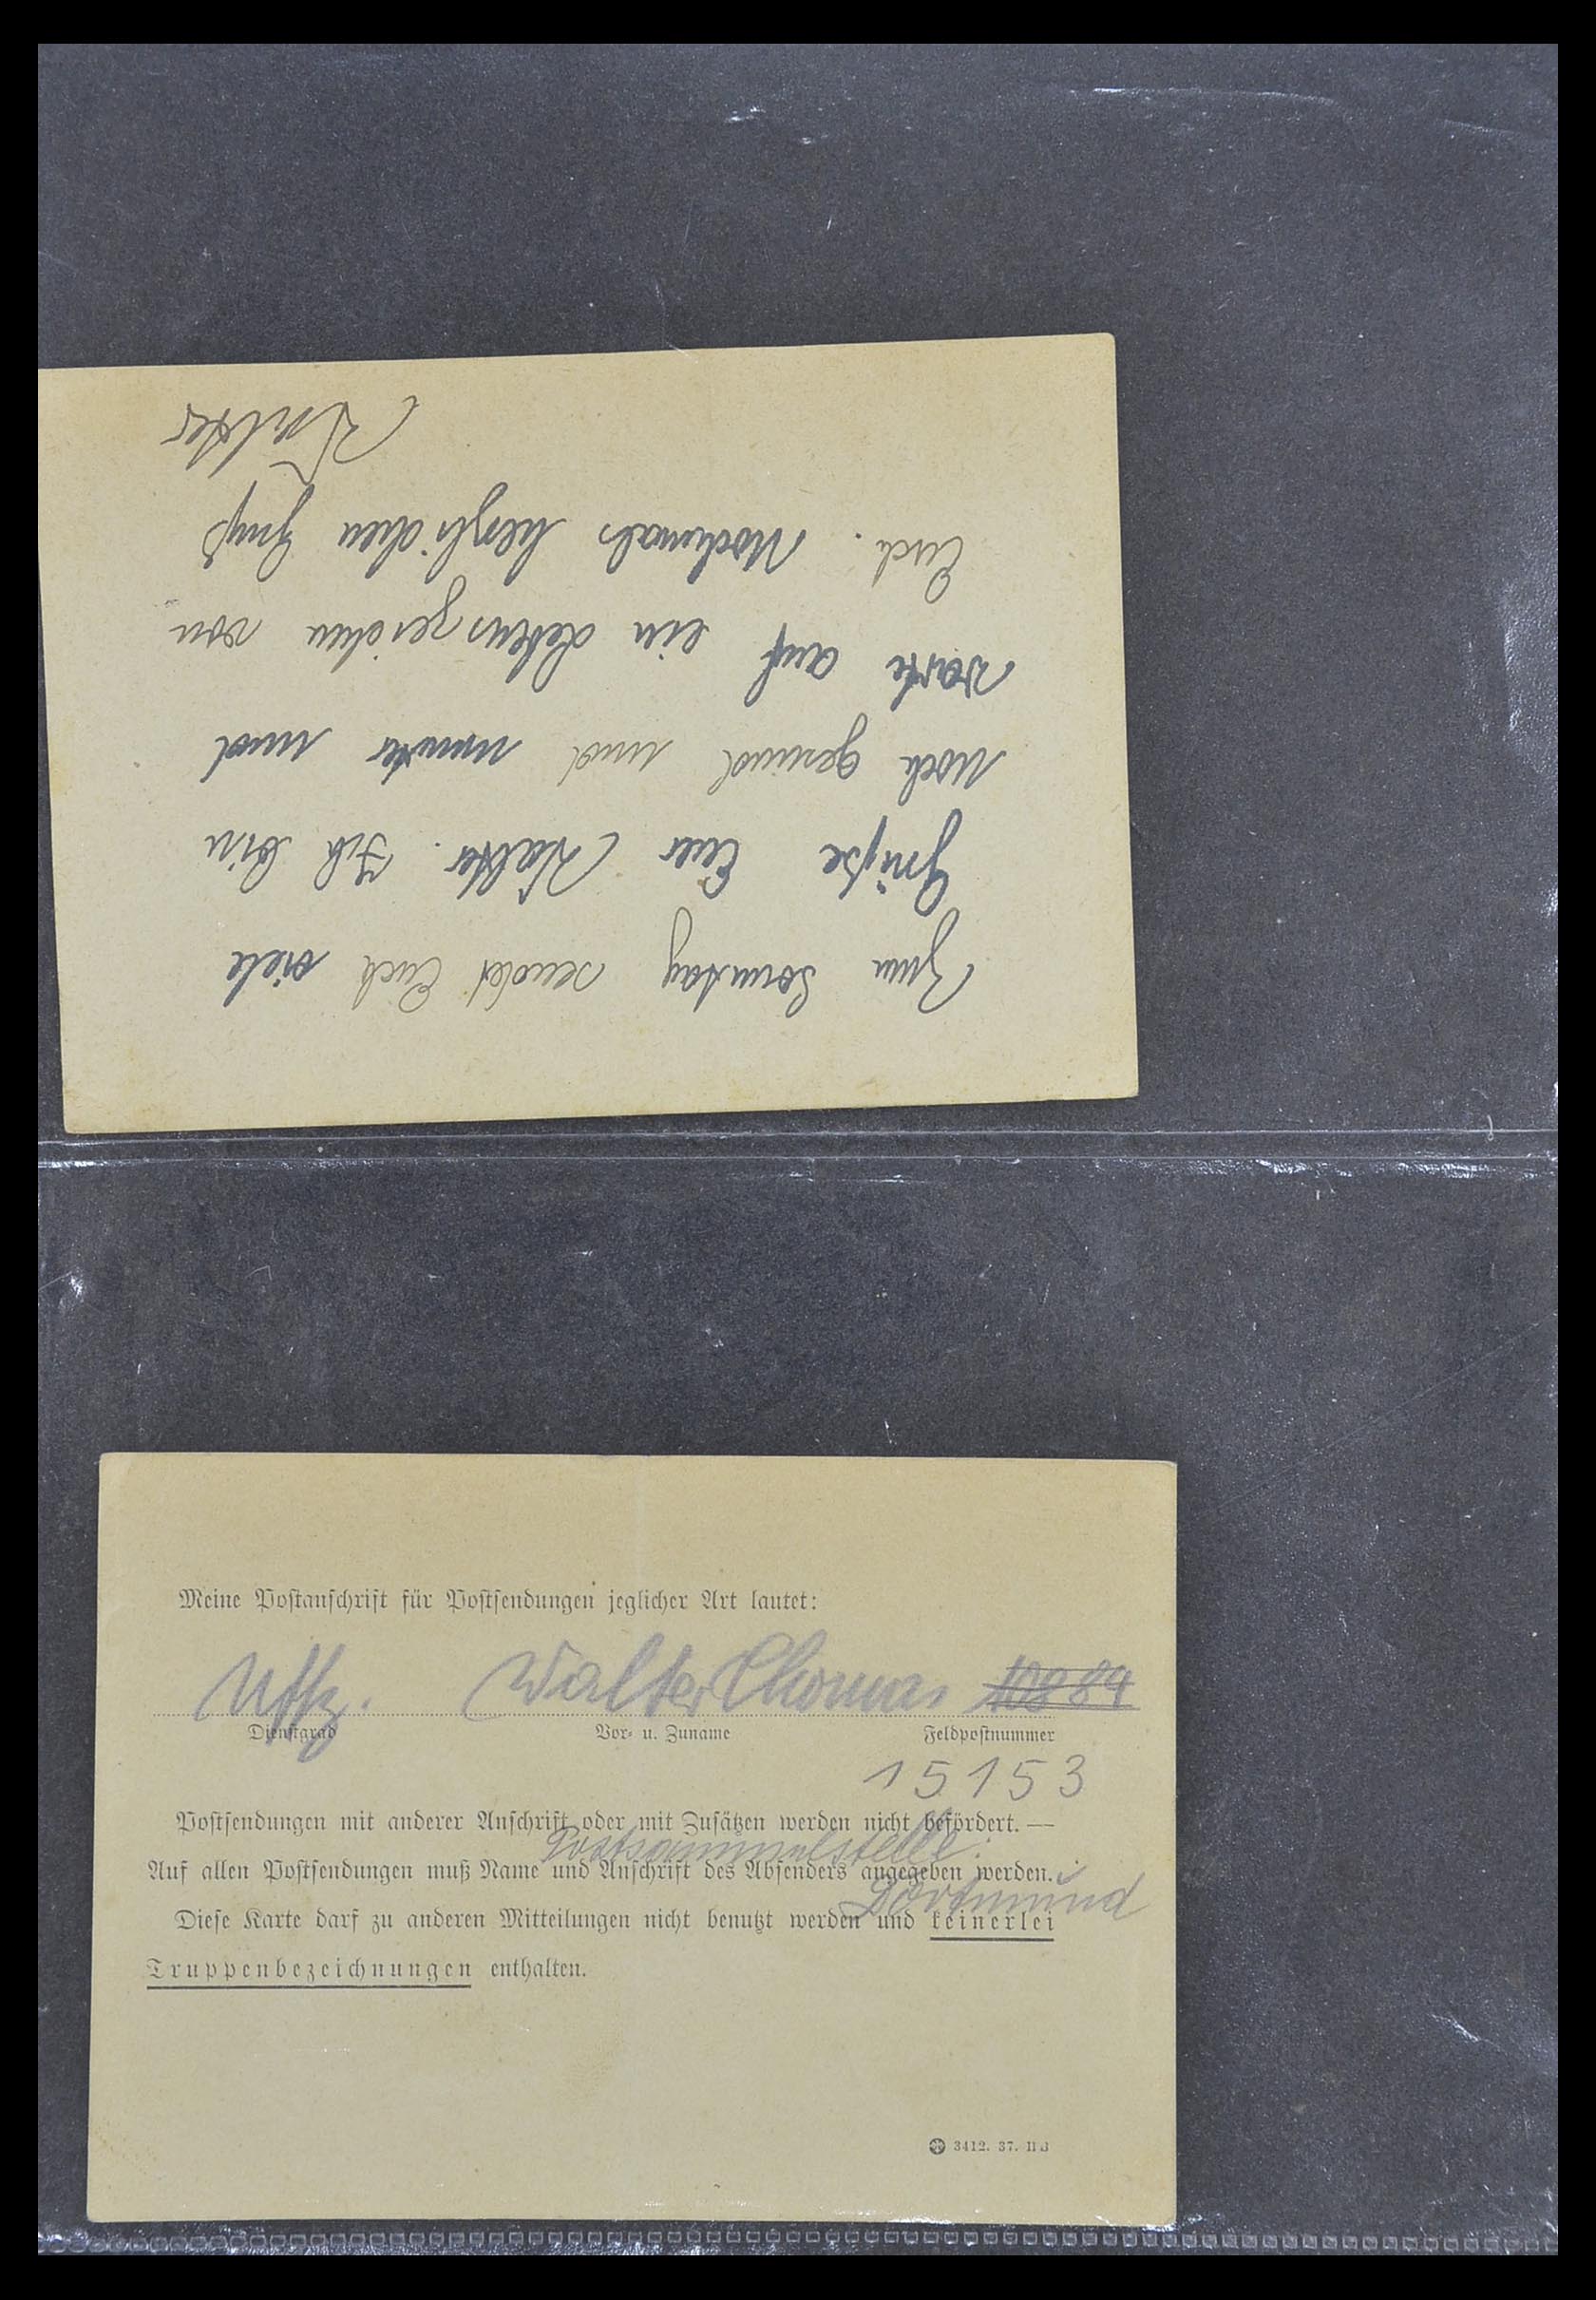 Zum Sonntag sendet Euch viele
Grüße Euer Walter. Ich bin
noch gesund und munter und
warte auf ein Lebenszeichen von
Euch. Nochmals herzlichen Gruß
Walter
Meine Postanschrift für Postsendungen jeglicher Art lautet:
Uffz. Walter Thomas 10884
Dienstgrad Vor- u. Zuname Feldpostnummer
15153
Postsendungen mit anderer Anschrift oder mit Zusätzen werden nicht befördert. —
Postsammelstelle:
Auf allen Postsendungen muß Name und Anschrift des Absenders angegeben werden.
Dortmund
Diese Karte darf zu anderen Mitteilungen nicht benutzt werden und keinerlei
Truppenbezeichnungen enthalten.
3412. 37. II B